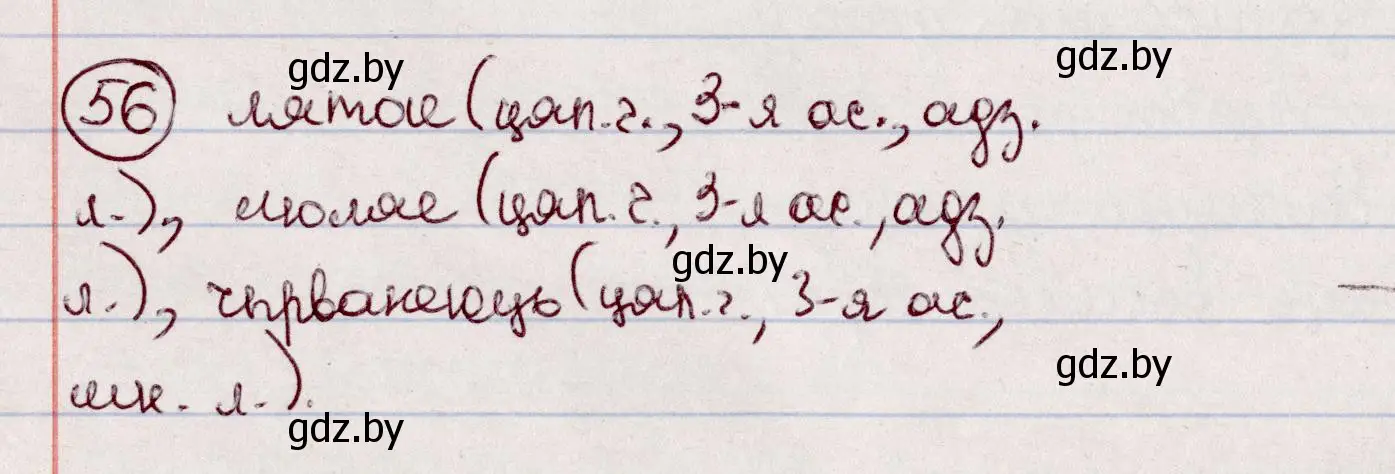 gdz.by gdz.by
56 лятае (цяп. г., 3-я ас., адз.
л.), (цяп. г., 3-я ас., адз.
gdz.by
л.), чырванеюць (цяп. г., 3-я ас.,
gdz.by
мн. л.).
gdz.by